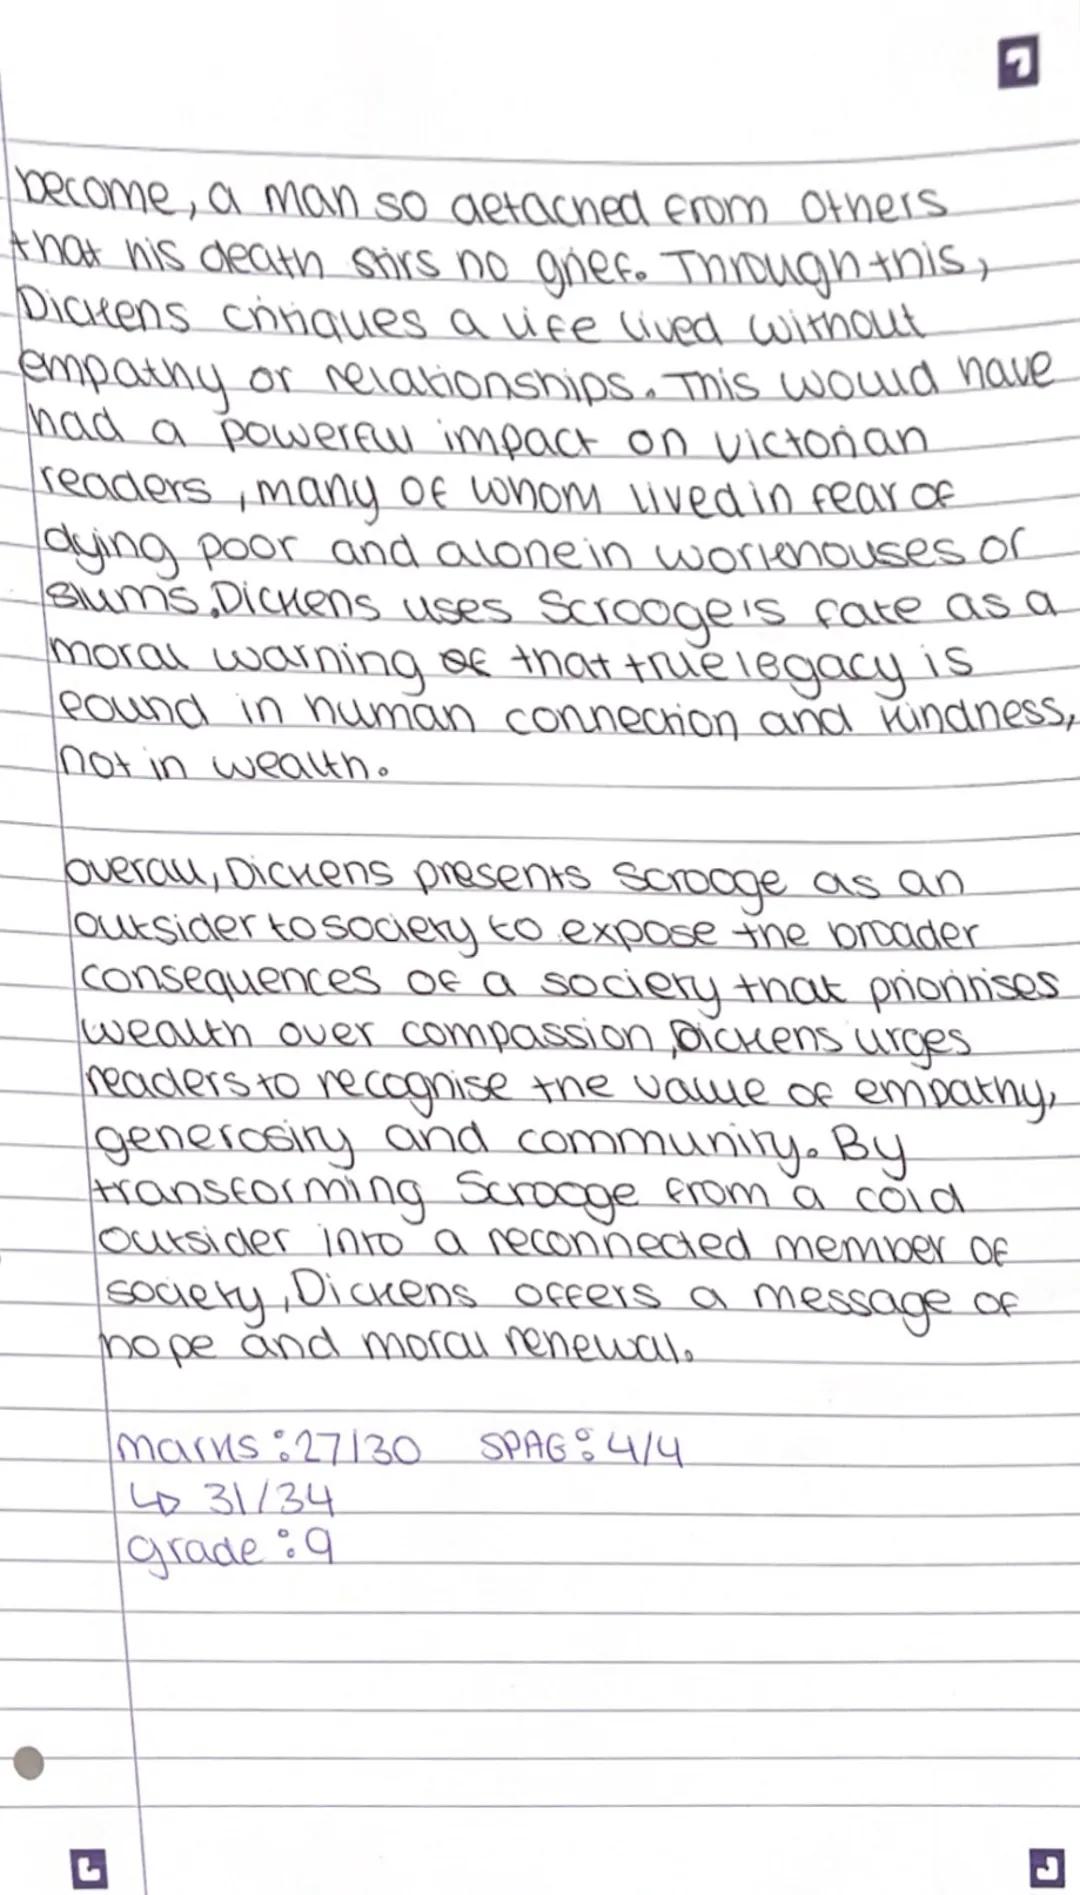 become, a man so detached from others
that his death stirs no grief. Through this,
Dickens critiques a life lived without
empathy or relationships. This would have
had a powerful impact on victorian
readers, many of whom lived in fear of
dying poor and alone in workhouses or
slums. Dickens uses Scrooge's fate as a
moral warning of that true legacy is
found in human connection and kindness,
not in wealth.
overall, Dickens presents Scrooge as an
outsider to society to expose the broader
consequences of a society that prioritises
wealth over compassion, Dickens urges
readers to recognise the value of empathy,
generosity and community. By
transforming Scrooge from a cold
outsider into a reconnected member of
society, Dickens offers a message of
hope and moral renewal.
marks: 27/30 SPAG: 4/4
↳ 31/34
grade: 9